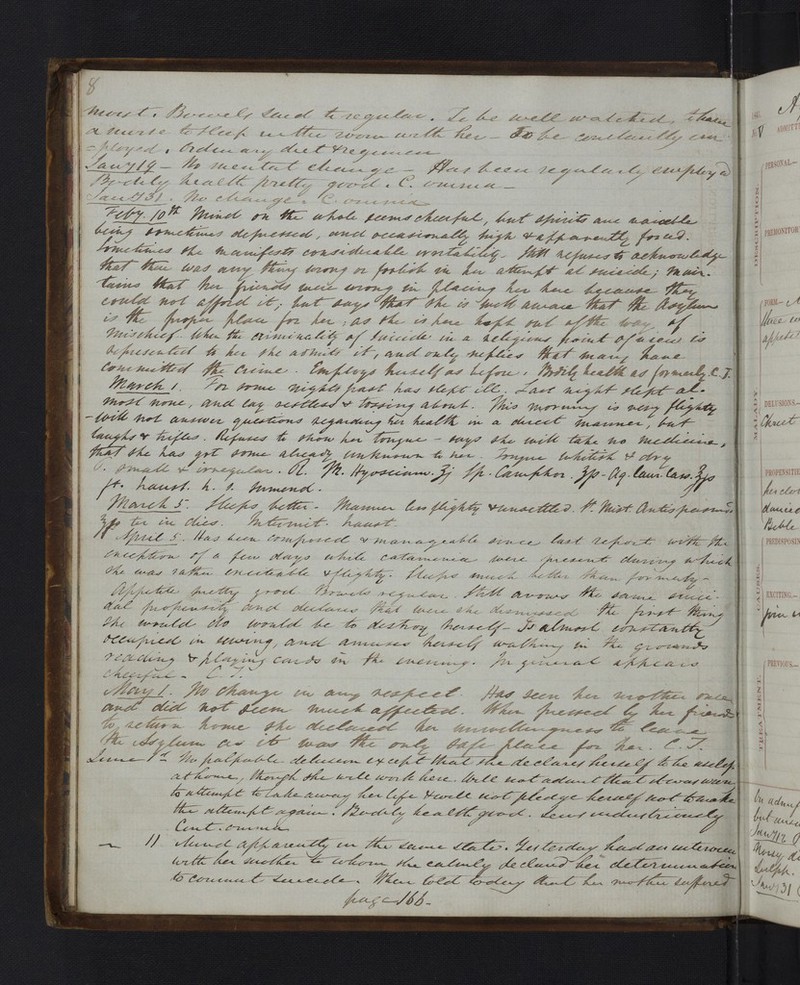 8
moist. Bowels said to regular. To be well watched, & have
a nurse to sleep in the room with her – To be constantly em
=ployed. Ordinary diet & regimen
Jany 19 – No mental change – Has been regularly employed
Bodily health pretty good. C. omnia –
Jany 31. No change. C. omnia
Feby. 10th Mind on the whole seems cheerful, but spirits are variable
being sometimes depressed, and occasionally high & apparently forced.
Sometimes she manifests considerable irritability. Still refuses to acknowledge
that there was any thing wrong or foolish in her attempt at suicide; main-
tains that her friends were wrong in placing her here because they
could not afford it; but says that she is well aware that the Asylum
is the proper place for her, as she is here kept out of the way of
mischief. When the criminality of suicide in a religious point of view is
represented to her she admits it, and only replies that many have
committed the crime. Employs herself as before. Bodily health as formerly C. T.
March 1. For some nights past has slept ill. Last night slept al-
most none, and lay restless & tossing about. This morning is very flighty
– will not answer questions regarding her health in a direct manner, but
laughs & trifles. Refuses to show her tongue – says she will take no medicine,
that she has got some already unknown to her. Tongue whitish & dry
P. small & irregular. R. Tr. Hyosciam. ʒj Sp. Camphor. ʒß – Aq. laur. cass. ʒjs
ft. haust. h. s. sumend.
March 5. Sleeps better. Manner less flighty & unsettled. R. Mist. Antispasmod.
ter in dies. Intermit. haust.
April 5. Has been composed & manageable since last report with the
exception of a few days while catamenia were present during which
she was rather excitable & flighty. Sleeps much better than formerly –
Appetite pretty good. Bowels regular. Still avows the same suici-
dal propensity and declares that were she dismissed the first thing
she would do would be to destroy herself – Is almost constantly
occupied in sewing, and amuses herself walking in the grounds
reading & playing cards in the evening. In general appears
cheerful – C. T.
May 1. No change in any respect. Has seen her mother once
and did not seem much affected. When pressed by her friends
to return home she declared her unwillingness to leave
the Asylum as it was the only safe place for her. C. T.
June 1st No palpable delusion except that she declares herself to be useless
at home, though she will work here. Will not admit that it was wrong
to attempt to take away her life & will not pledge herself not to make
the attempt again. Bodily health good. Sews industriously
Cont. omnia
– 11 Mind apparently in the same state. Yesterday had an interview
with her mother to whom she calmly declared her determination
to commit suicide. When told today that her mother suffered
page 166 –
PERSONAL –
DESCRIPTION
FORM –
MALADY
DELUSIONS –
Christ
Bible
CAUSES
EXCITING –
PREVIOUS –
TREATMENT
On adm
Jany 12
Sulph.
Jany 31